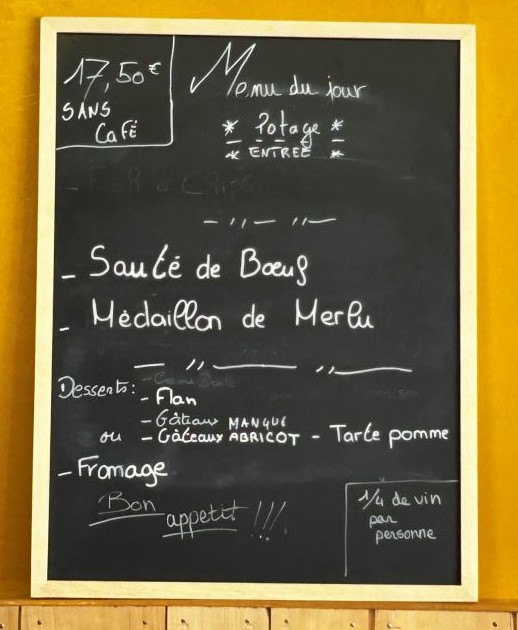 17,50€
SANS
Café
Menu du jour
* Potage *
* ENTREE *
- Sauté de Bœuf
- Médaillon de Merlu
Desserts:
- Flan
- Gâteaux MANQUE
ou - Gâteaux ABRICOT - Tarte pomme
- Fromage
Bon
appetit !!!
1/4 de vin
par
personne